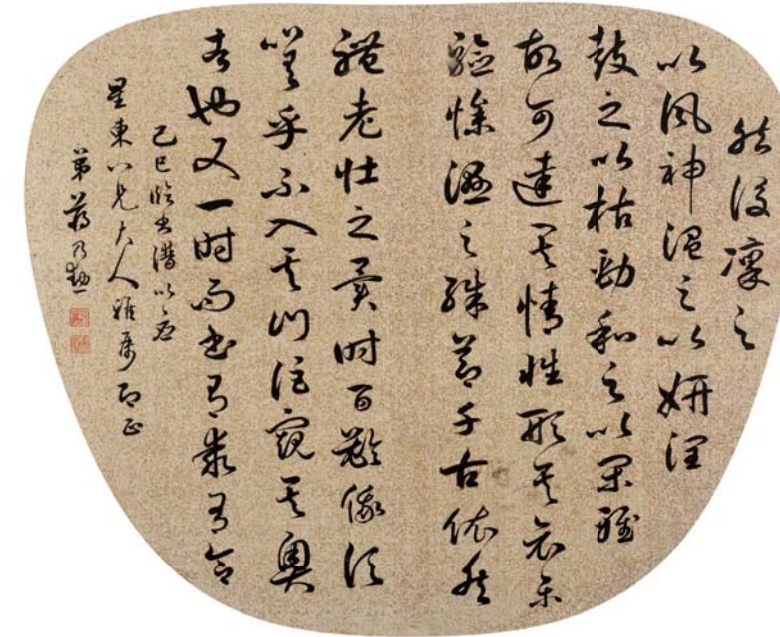 然後凜之
以風神溫之以妍潤
鼓之以枯勁和之以閑雅
故可達其情性形其哀樂
驗燥濕之殊節千古依然
體老壯之異時百齡俄頃
嗟乎不入其門詎窺其奧
者也又一時而書有乖有合
己巳臨書譜以應
星東八兄大人雅屬即正
弟蔣乃勳